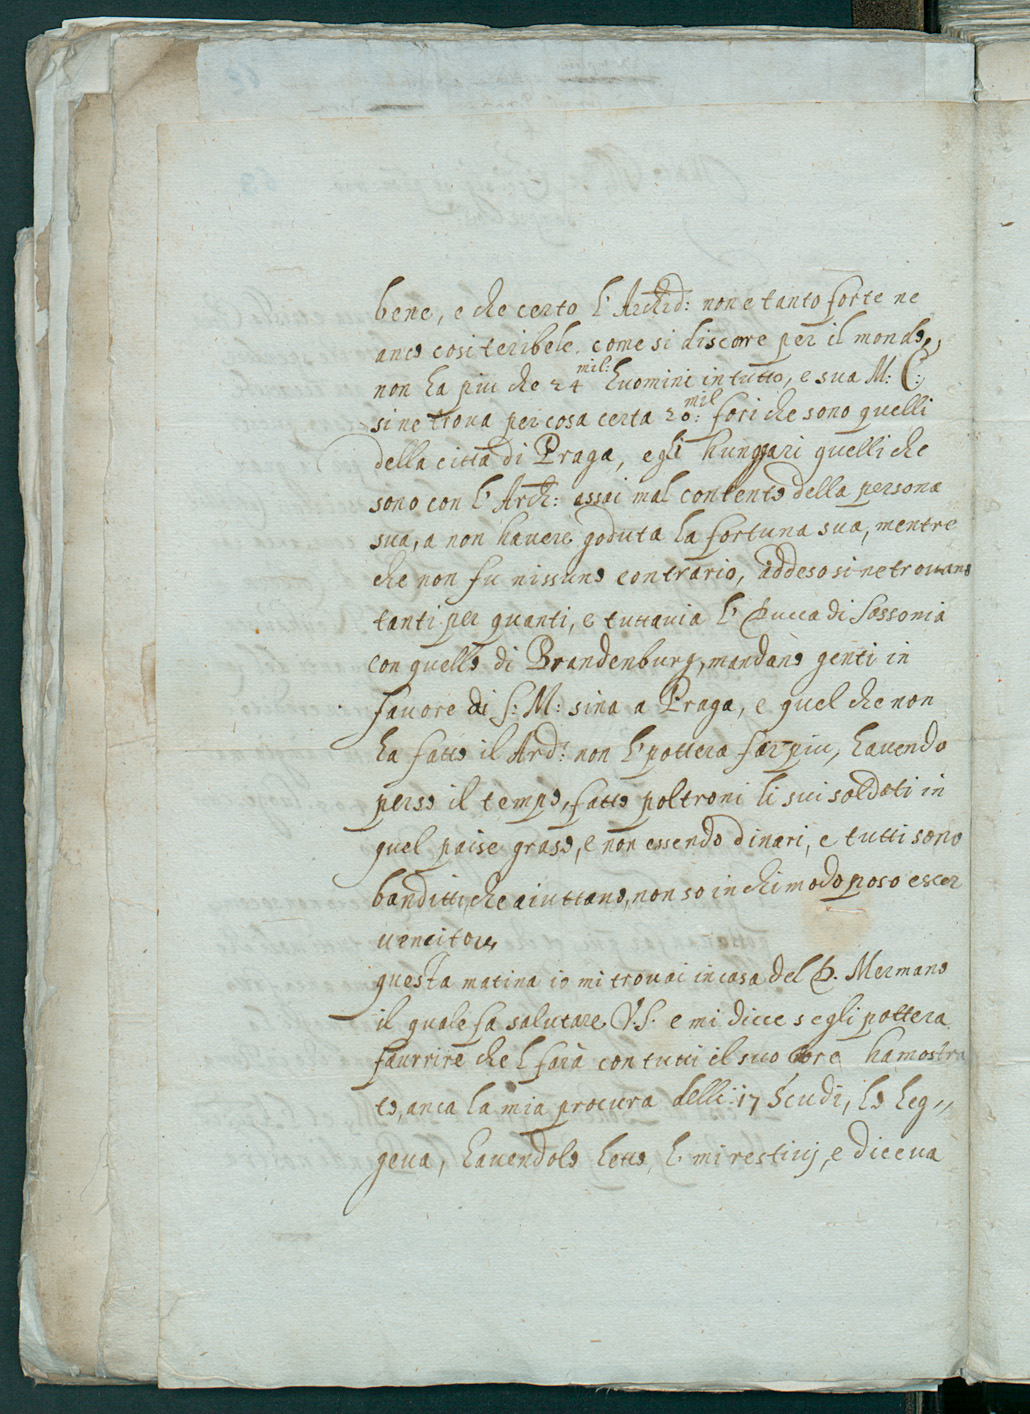 bene, e che certo l' Archid: non e tanto forte ne
anco cosi teribele. come si discore per il mondo,,
non ha piu che 24 mil: huomini in tutto, e sua M: C:
si ne trova per cosa certa 20 mil: fori che sono quelli
della citta di Praga, e gli hungari quelli che
sono con l' Arch: assai mal contento della persona
sua, a non havere goduta la fortuna sua, mentre
che non fu nissuno contrario, addeso si ne trovano
tanti per quanti, e tuttavia l' Ducca di Sassonia
con quello di Brandenburg, mandano genti in
favore di S: M: sina a Praga, e quel che non
ha fatto il Ard: non l' pottera far piu, havendo
perso il tempo, fatto poltroni li sui soldati in
quel paise graso, e non essendo dinari, e tutti sono
banditti, che aiuttano, non so in chi modo poso escer
vencitor,
questa matina io mi trovai in casa del D. Mermano
il quale fa salutare V.S. e mi dicce se gli pottera
favrrire che l farà con tutti il suo core ha mostra
to, anca la mia procura delli 17 Scudi, lo leg,,
geva, havendolo letto, l' mi restivj, e diceva